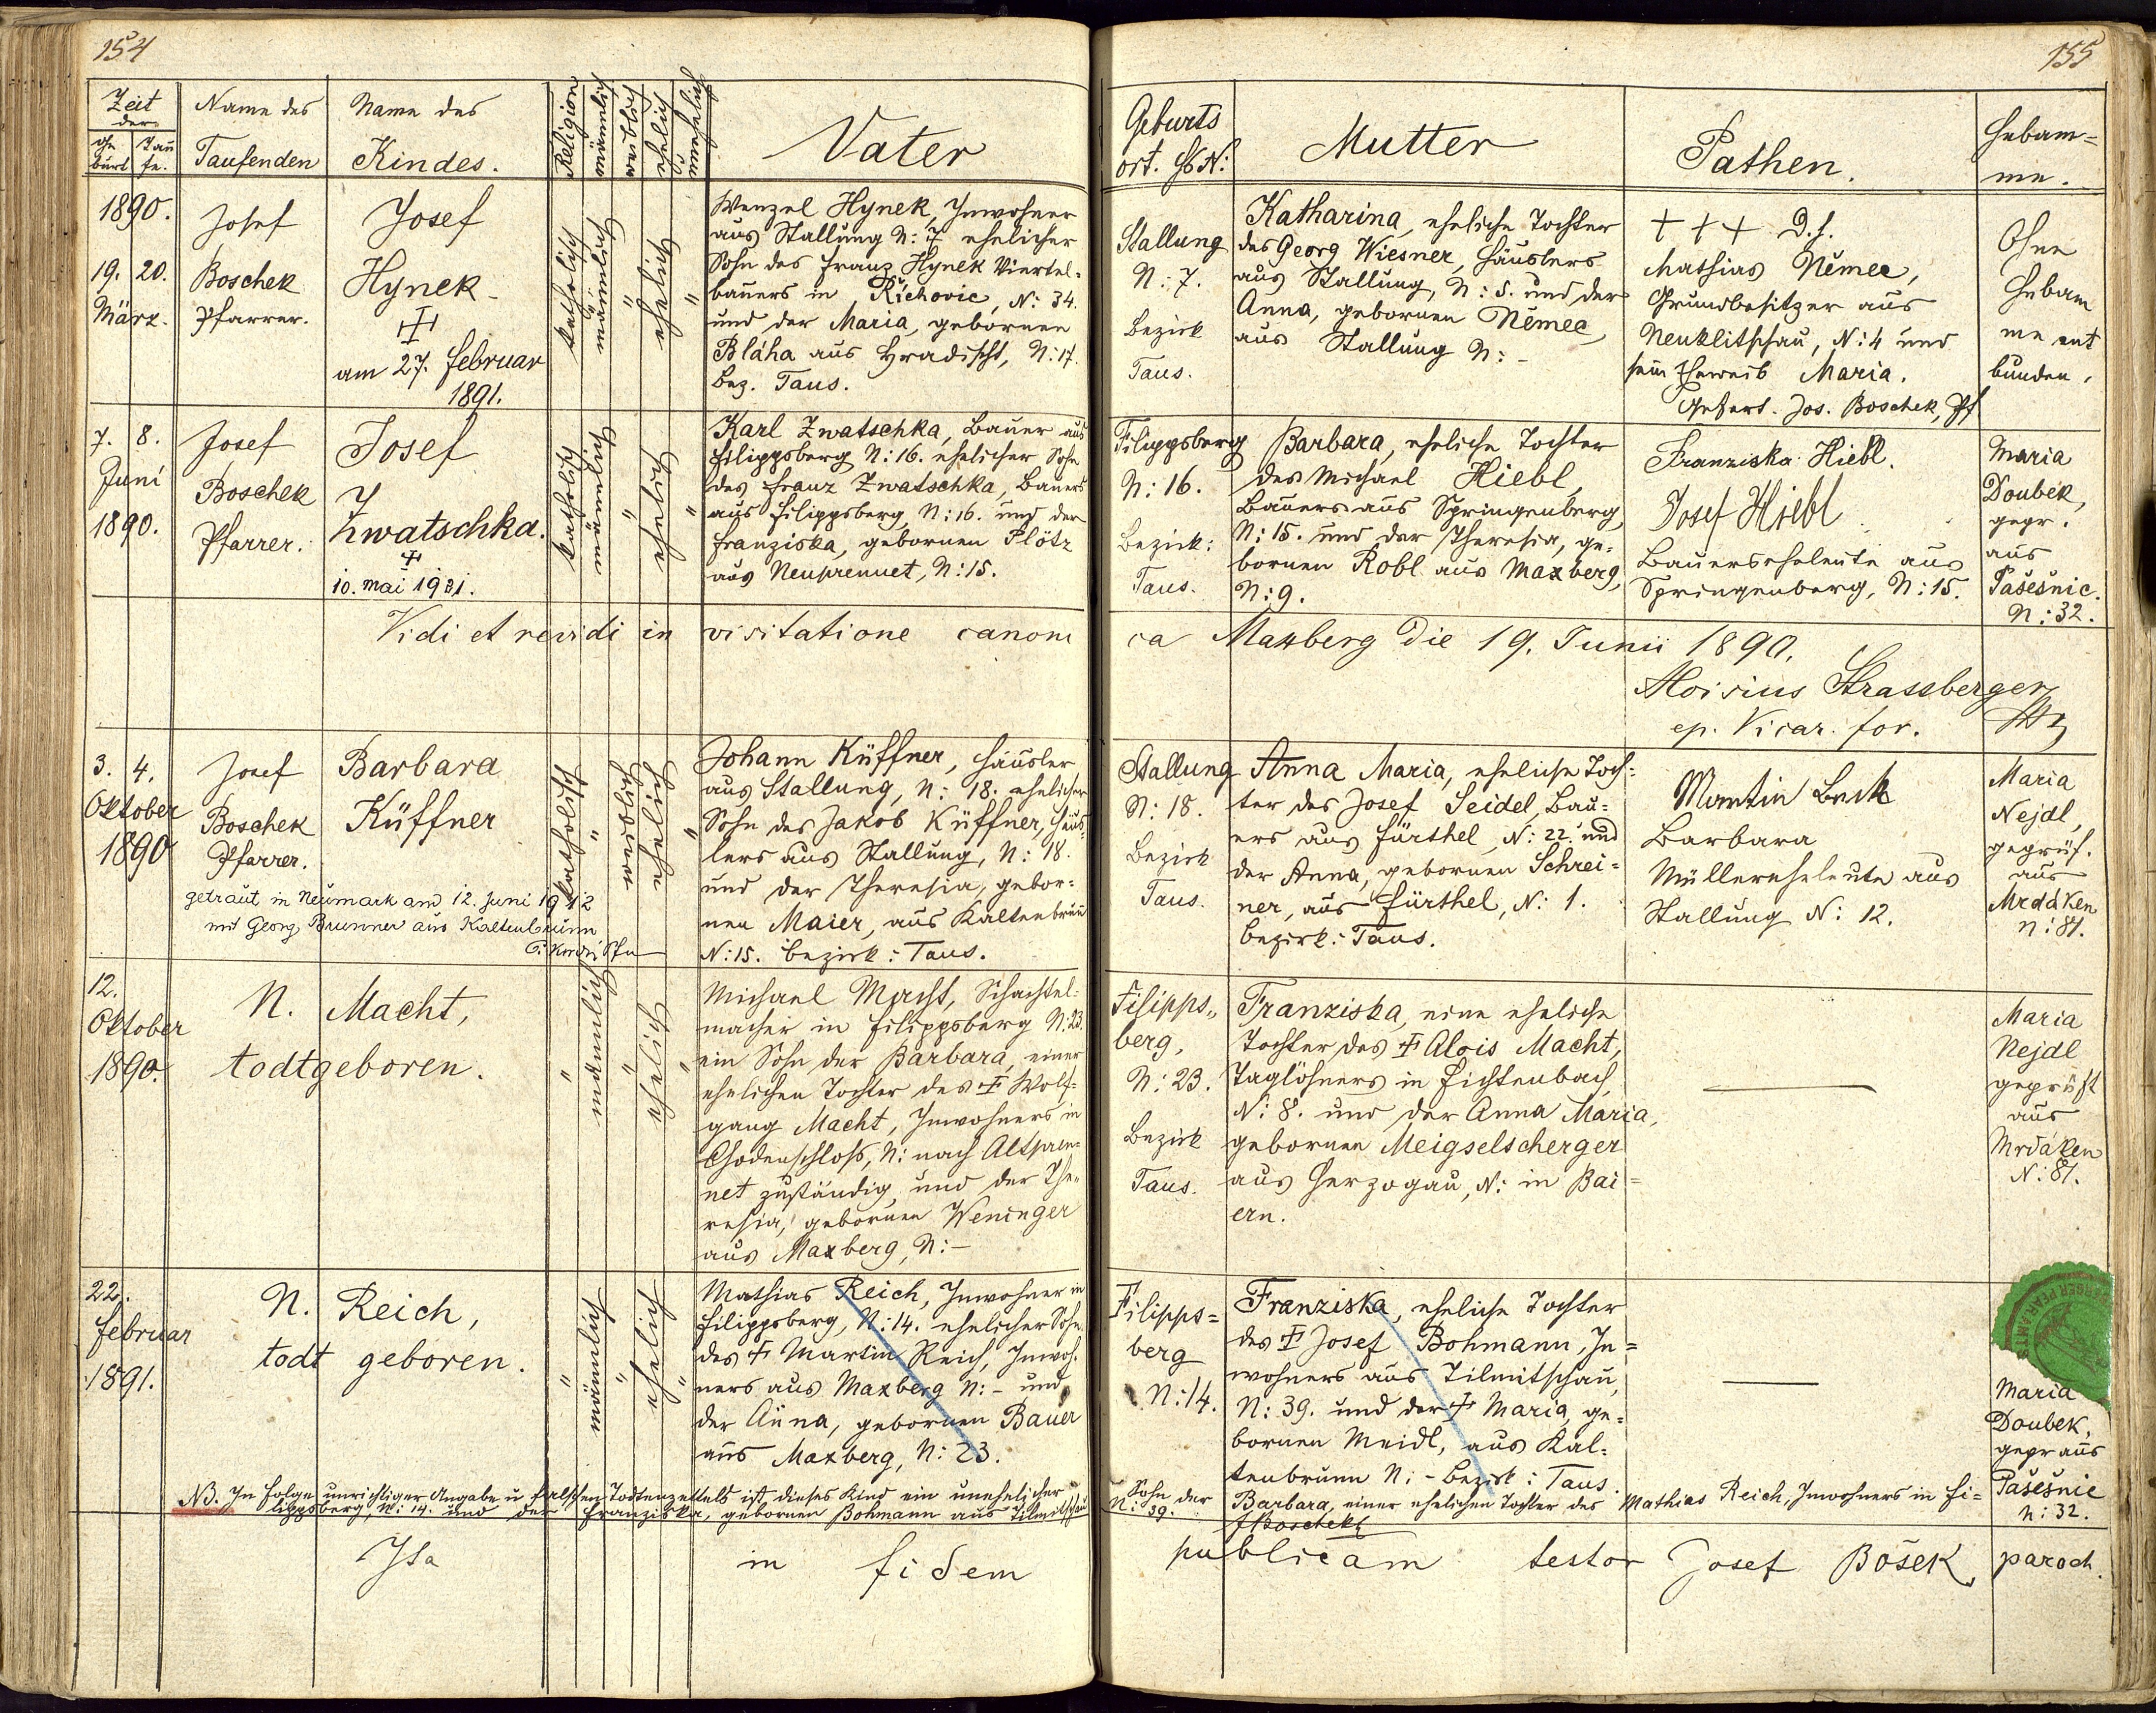 154
Zeit
der
Ge
burt
Tau
fe.
Name des
Taufenden
Name des
Kindes.
Religion
männlich
weiblich
ehelich
unehelich
Vater
1890.
19. 20.
März.
Josef
Boschek
Pfarrer.
Josef
Hynek
am 27. Februar
1891.
katholisch
männlich
"
ehelich
"
Wenzel Hynek, Inwohner
aus Stallung N: 7 ehelicher
Sohn des Franz Hynek Viertel-
bauers in Řichovic, N: 34.
und der Maria, gebornen
Bláha aus Hradischt, N: 17.
Bez. Taus.
7. 8.
Juni
1890.
Josef
Boschek
Pfarrer.
Josef
Zwatschka.
10. Mai 1901.
katholisch
männlich
"
ehelich
"
Karl Zwatschka, Bauer aus
Filippsberg N: 16. ehelicher Sohn
des Franz Zwatschka, Bauers
aus Filippsberg, N: 16. und der
Franziska, gebornen Plötz
aus Neuprennet, N: 15.
Vidi et revidi in visitatione canoni
3. 4.
Oktober
1890
Josef
Boschek
Pfarrer.
Barbara
Küffner
getraut in Neumark am 12. Juni 1912
mit Georg Brunner aus Kaltenbrunn
katholisch
"
weiblich
ehelich
"
Johann Küffner, Häusler
aus Stallung, N: 18. ehelicher
Sohn des Jakob Küffner, Häus-
lers aus Stallung, N: 18.
und der Theresia, gebor-
nen Maier, aus Kaltenbrunn
N: 15. Bezirk: Taus.
12.
Oktober
1890.
N. Macht,
todtgeboren.
"
männlich
"
ehelich
"
Michael Macht, Schachtel-
macher in Filippsberg N: 23.
ein Sohn der Barbara, einer
ehelichen Tochter des Wolf-
gang Macht, Inwohners in
Chodenschloß, N: nach Altpren-
net zuständig, und der The-
resia, gebornen Weninger
aus Maxberg, N: -
22.
Februar
1891.
N. Reich,
todt geboren.
"
männlich
"
ehelich
"
Mathias Reich, Inwohner in
Filippsberg, N: 14. ehelicher Sohn
des Martin Reich, Inwoh-
ners aus Maxberg N: - und
der Anna, gebornen Bauer
aus Maxberg, N: 23.
NB. In Folge unrichtiger Angabe u falschen Todtenzettels ist dieses Kind ein unehelicher
lippsberg, N: 14. und der Franziska, gebornen Bohmann aus Tilmitschau
Ita in fidem
155
Geburts
ort. Hs N:
Mutter
Pathen.
Hebam-
me.
Stallung
N: 7.
Bezirk
Taus.
Katharina, eheliche Tochter
des Georg Wiesner, Häuslers
aus Stallung, N: 5. und der
Anna, gebornen Němec
aus Stallung N: -
+ + + D. h.
Mathias Němec,
Grundbesitzer aus
Neuklitschau, N: 4 und
sein Eheweib Maria.
Gefert. Jos. Boschek, Pf
Ohne
Hebam
me ent
bunden.
Filippsberg
N: 16.
Bezirk:
Taus.
Barbara, eheliche Tochter
des Michael Hiebl,
Bauers aus Springenberg,
N: 15. und der Theresia, ge-
bornen Robl aus Maxberg,
N: 9.
Franziska Hiebl.
Josef Hiebl
Bauerseheleute aus
Springenberg, N: 15.
Maria
Doubek,
gepr.
aus
Pašešnic.
N: 32.
ca Maxberg die 19. Junii 1890.
Aloisius Strassberger
ep. Vicar. for.
Stallung
N: 18.
Bezirk
Taus.
Anna Maria, eheliche Toch-
ter des Josef Seidel, Bau-
ers aus Fürthel, N: 22. und
der Anna, gebornen Schrei-
ner, aus Fürthel, N: 1.
Bezirk: Taus.
Martin Beck
Barbara
Müllereheleute aus
Stallung N: 12.
Maria
Nejdl,
geprüf.
aus
Mrdaken
N: 81.
Filipps-
berg,
N: 23.
Bezirk
Taus.
Franziska, eine eheliche
Tochter des Alois Macht,
Taglöhners in Fichtenbach
N: 8. und der Anna Maria,
gebornen Meigselscherger
aus Herzogau, N: in Bai-
ern.
Maria
Nejdl
geprüft
aus
Mrdaken
N: 81.
Filipps-
berg
N: 14.
Franziska, eheliche Tochter
des Josef Bohmann, In-
wohners aus Tilmitschau,
N: 39. und der Maria, ge-
bornen Meidl, aus Kal-
tenbrunn N: - Bezirk: Taus.
Maria
Doubek,
gepr aus
Pašešnic
N: 32.
Sohn der Barbara, einer ehelichen Tochter des Mathias Reich, Inwohners in Fi-
N: 39. JBoschek
publicam testor Josef Bošek, paroch.